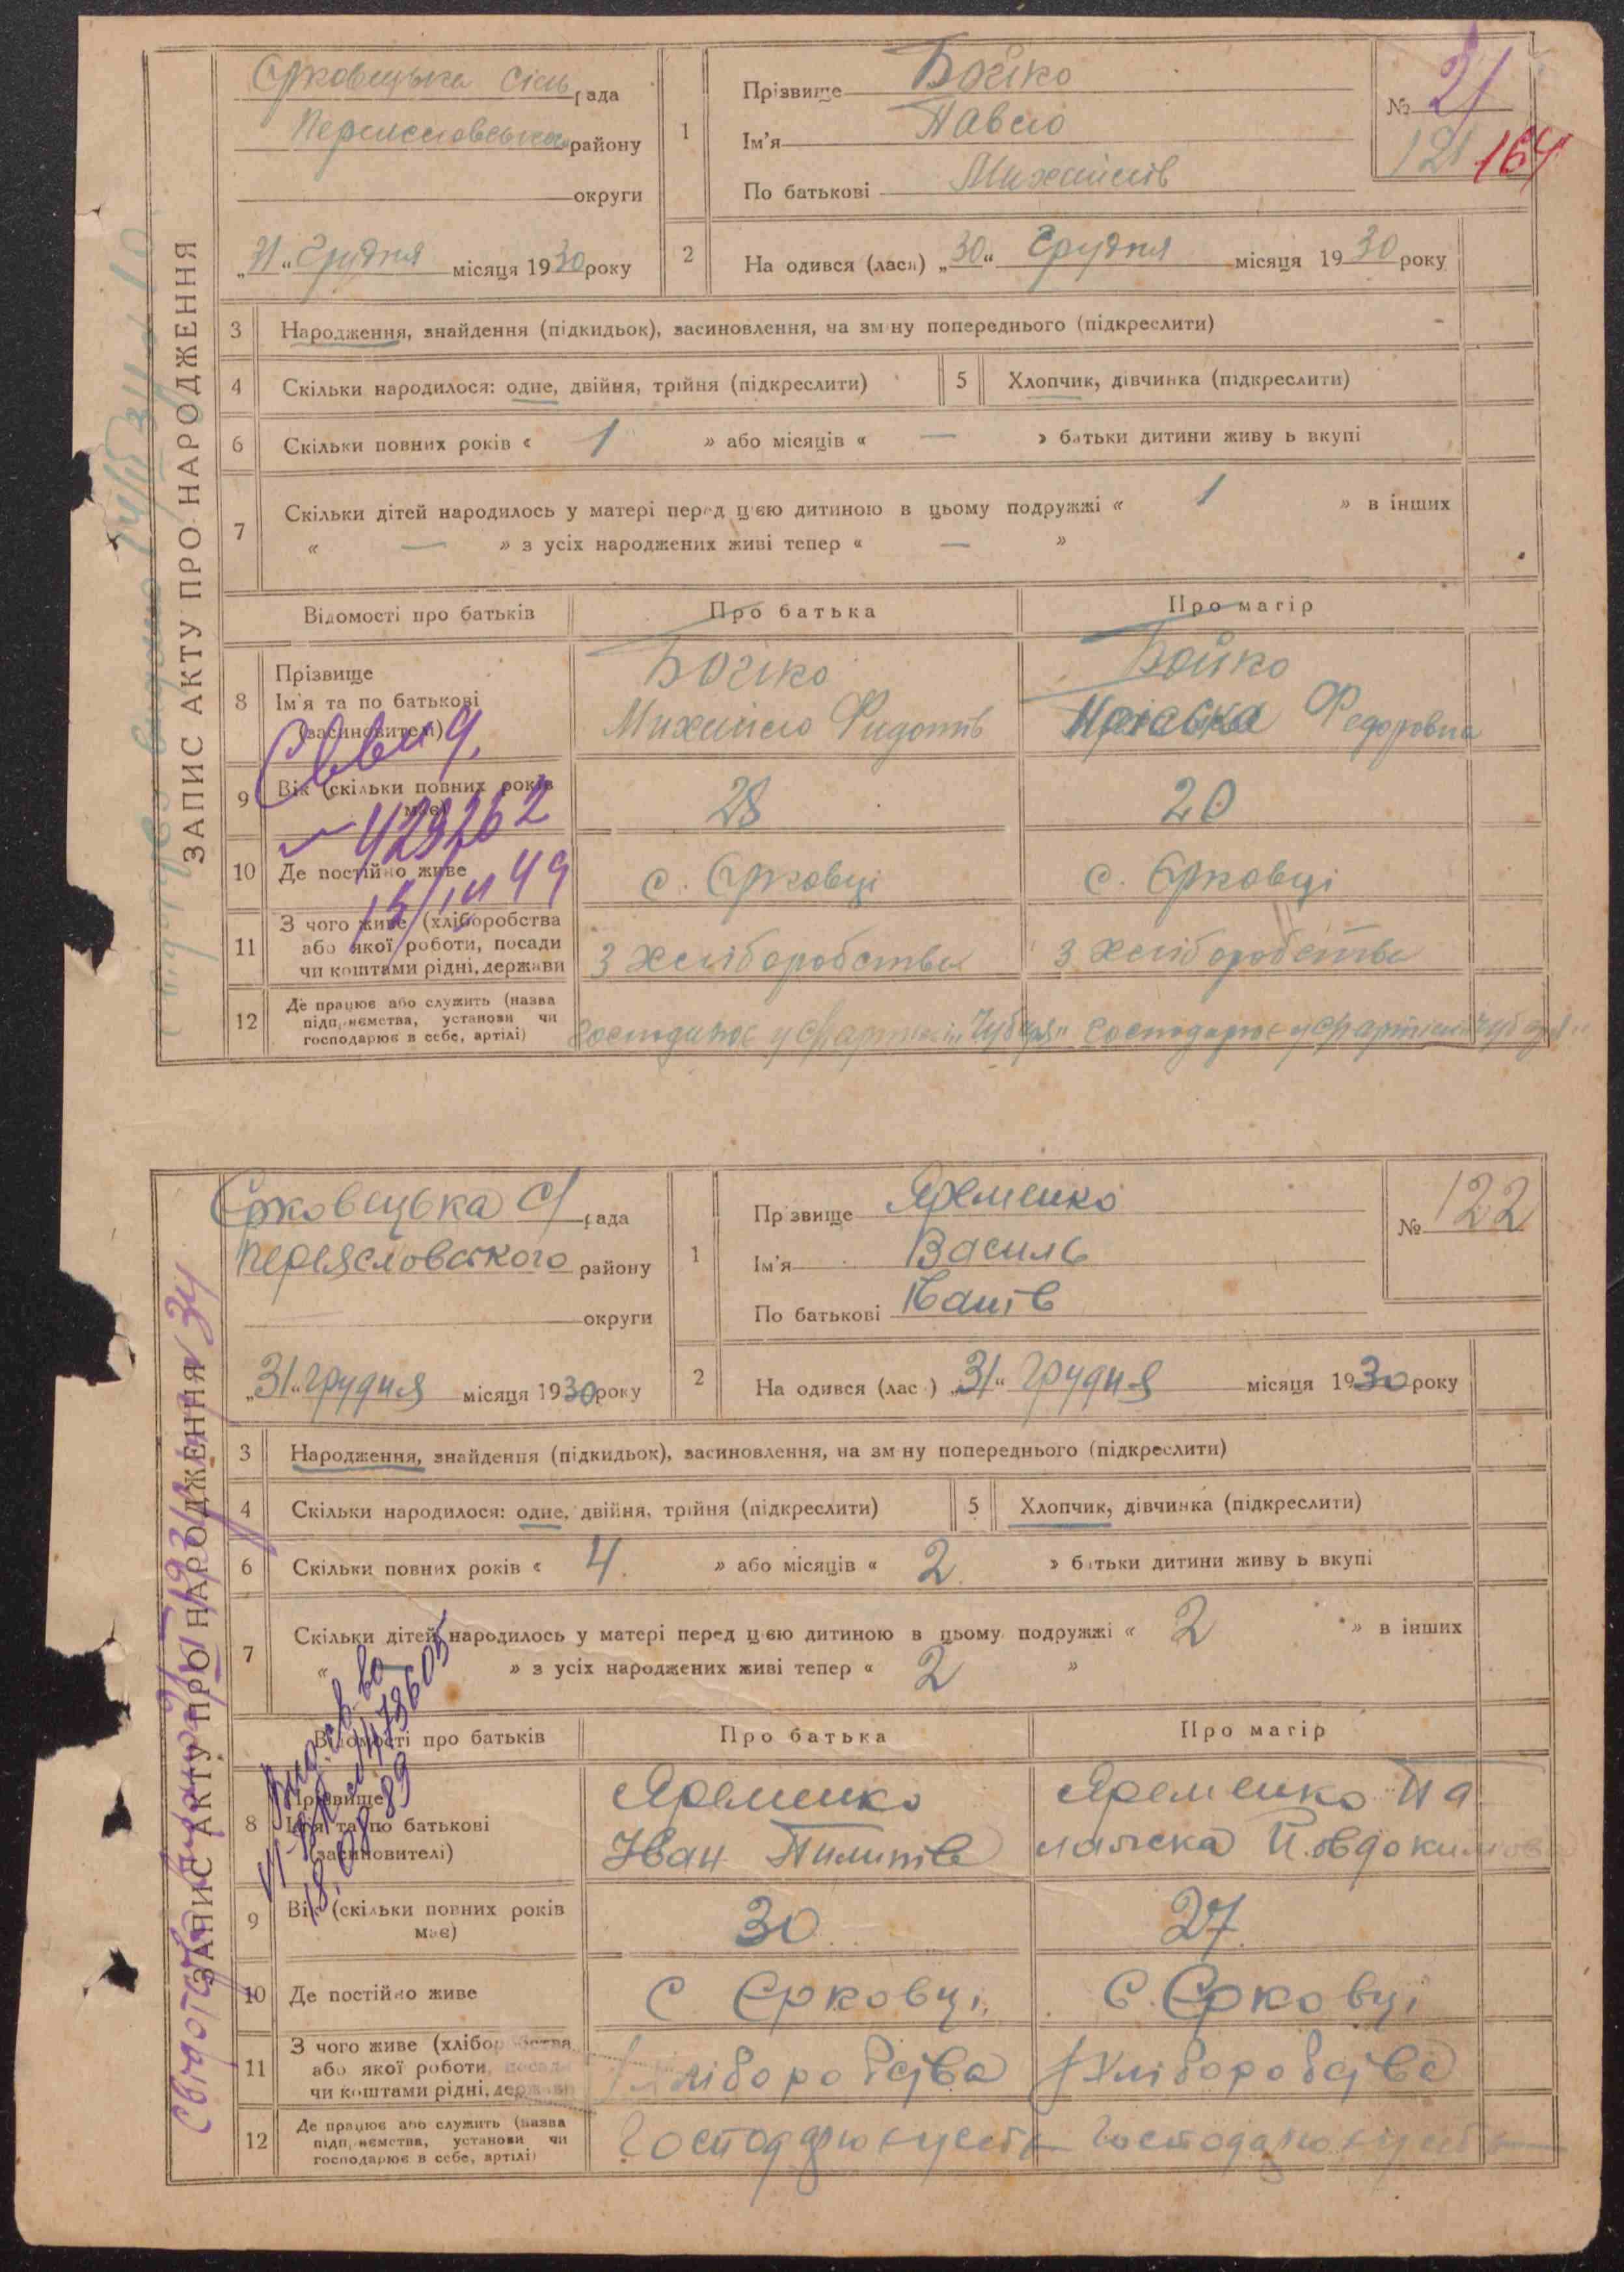 ЗАПИС АКТУ ПРО НАРОДЖЕННЯ
Єрковецька сіль рада
району
округи
„31“ Грудня місяця 1930 року
1
Прізвище Бойко
Ім'я Павло
По батькові Михайлів
№ 21
121 164
2
На одився (лася) „30“ Грудня місяця 1930 року
3 Народження, знайдення (підкидьок), засиновлення, на зм ну попереднього (підкреслити)
4 Скільки народилося: одне, двійня, трійня (підкреслити)
5 Хлопчик, дівчинка (підкреслити)
6 Скільки повних років « 1 » або місяців « — » батьки дитини живу ь вкупі
7 Скільки дітей народилось у матері перед цією дитиною в цьому подружжі « 1 » в інших
« — » з усіх народжених живі тепер « — »
Відомості про батьків Про батька Про матір
8 Прізвище
Ім'я та по батькові
(засиновителі)
Бойко
Михайло Федотів
Бойко
Федоровна
Свви д.
9 Вік (скільки повних років має) 28 20
429262
10 Де постійно живе с. Єрковці с. Єрковці
11 З чого живе (хліборобства
або якої роботи, посади
чи коштами рідні, держави
З хліборобства З хліборобства
12 Де працює або служить (назва
підп ємства, установи чи
господарює в себе, артілі)
ЗАПИС АКТУ ПРО НАРОДЖЕННЯ
Єрковецька с/ рада
Переясловского району
округи
„31“ грудня місяця 1930 року
1
Пр звище Яременко
Ім'я Василь
По батькові Іванів
№ 122
2
На одився (лас ) „31“ грудня місяця 1930 року
3 Народження, знайдення (підкидьок), засиновлення, на зм ну попереднього (підкреслити)
4 Скільки народилося: одне, двійня, трійня (підкреслити)
5 Хлопчик, дівчинка (підкреслити)
6 Скільки повних років « 4 » або місяців « 2 » батьки дитини живу ь вкупі
7 Скільки дітей народилось у матері перед цією дитиною в цьому подружжі « 2 » в інших
« » з усіх народжених живі тепер « 2 »
Відомості про батьків Про батька Про матір
8 Прізвище
Ім'я та по батькові
(засиновителі)
Яременко
Іван Пилипів
Яременко Па
лажка
18.08.89
9 Вік (скільки повних років
має)
30 27
10 Де постійно живе С Єрковці С. Єрковці
11 З чого живе (хліборобства
або якої роботи, посади
чи коштами рідні, держави
Хліборобства Хліборобства
12 Де працює або служить (назва
підп ємства, установи чи
господарює в себе, артілі)